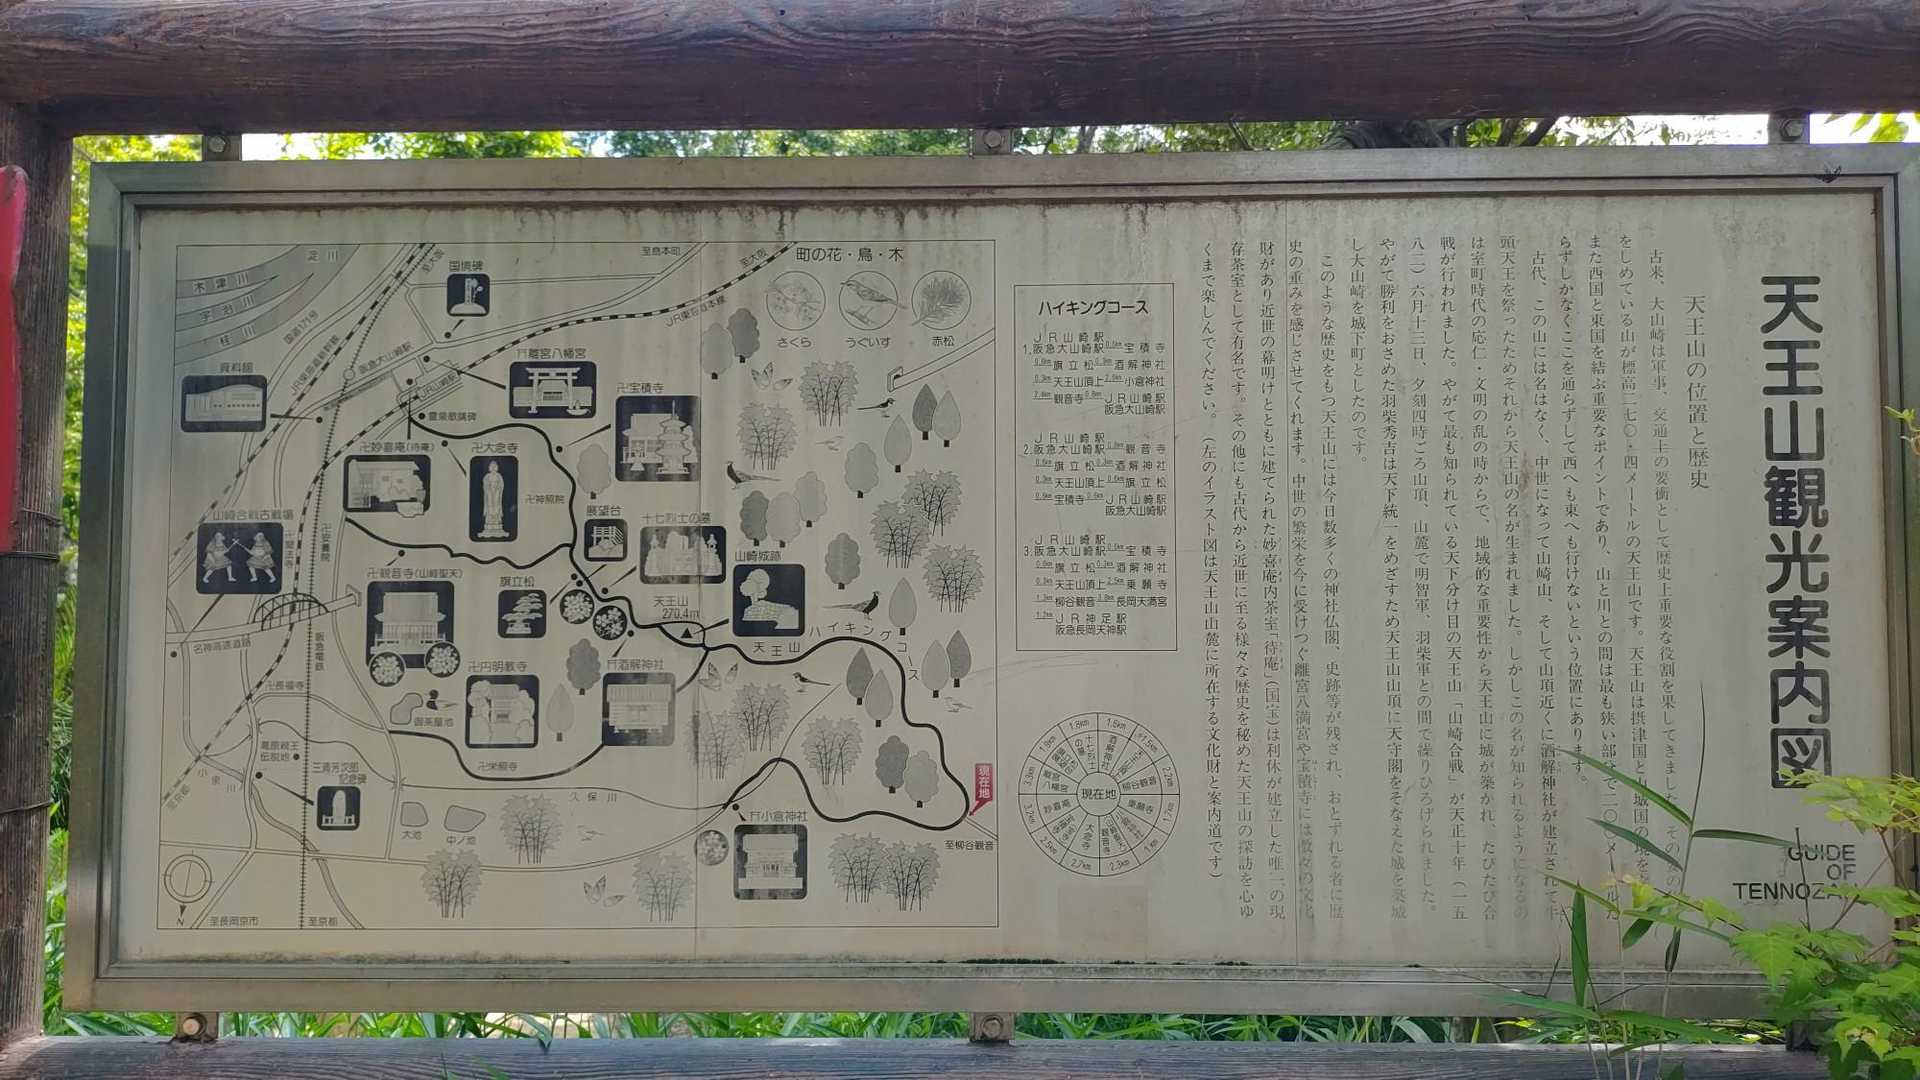 天王山観光案内図
GUIDE
OF
TENNOZAN
天王山の位置と歴史
古来、大山崎は軍事、交通上の要衝として歴史上重要な役割を果してきました。その
をしめている山が標高二七〇・四メートルの天王山です。天王山は摂津国と山城国の境を
また西国と東国を結ぶ重要なポイントであり、山と川との間は最も狭い部分で二〇〇メートルた
らずしかなくここを通らずして西へも東へも行けないという位置にあります。
古代、この山には名はなく、中世になって山崎山、そして山頂近くに酒解神社が建立されて牛
頭天王を祭ったためそれから天王山の名が生まれました。しかしこの名が知られるようになるの
は室町時代の応仁・文明の乱の時からで、地域的な重要性から天王山に城が築かれ、たびたび合
戦が行われました。やがて最も知られている天下分け目の天王山「山崎合戦」が天正十年（一五
八二）六月十三日、夕刻四時ごろ山頂、山麓で明智軍、羽柴軍との間で繰りひろげられました。
やがて勝利をおさめた羽柴秀吉は天下統一をめざすため天王山山頂に天守閣をそなえた城を築城
し大山崎を城下町としたのです。
このような歴史をもつ天王山には今日数多くの神社仏閣、史跡等が残され、おとずれる者に歴
史の重みを感じさせてくれます。中世の繁栄を今に受けつぐ離宮八満宮や宝積寺には数々の文化
財があり近世の幕明けとともに建てられた妙喜庵内茶室「待庵」（国宝）は利休が建立した唯一の現
存茶室として有名です。その他にも古代から近世に至る様々な歴史を秘めた天王山の探訪を心ゆ
くまで楽しんでください。（左のイラスト図は天王山山麓に所在する文化財と案内道です）
ハイキングコース
JR山崎駅
1.阪急大山崎駅 0.5km 宝積寺
0.6km 旗立松 0.3km 酒解神社
0.3km 天王山頂上 2.6km 小倉神社
2.4km 観音寺 0.8km JR山崎駅
阪急大山崎駅
JR山崎駅
2.阪急大山崎駅 0.8km 観音寺
0.6km 旗立松 0.3km 酒解神社
0.3km 天王山頂上 0.6km 旗立松
0.6km 宝積寺 0.6km JR山崎駅
阪急大山崎駅
JR山崎駅
3.阪急大山崎駅 0.5km 宝積寺
0.6km 旗立松 0.3km 酒解神社
0.3km 天王山頂上 2.5km 乗願寺
1.3km 柳谷観音 3.8km 長岡天満宮
1.2km JR神足駅
阪急長岡天神駅
現在地
酒解神社
柳谷観音
乗願寺
小倉神社
観音寺
大念寺
妙喜庵
離宮八幡宮
十七烈士の墓
1.8km
1.6km
2.2km
1.7km
1km
2.3km
2.7km
2.5km
3.2km
3.3km
1.9km
町の花・鳥・木
さくら
うぐいす
赤松
淀川
木津川
宇治川
桂川
国道171号
至大阪
至島本町
至大阪
JR東海道本線
JR東海道新幹線
国境碑
阪急大山崎駅
JR山崎駅
資料館
离宮八幡宮
卍宝積寺
霊泉歌謡碑
卍妙喜庵(待庵)
卍大念寺
卍神照院
展望台
十七烈士の墓
山崎城跡
山崎合戦古戦場
卍聞法寺
卍安養院
卍観音寺(山崎聖天)
旗立松
天王山
270.4m
天王山
ハイキングコース
名神高速道路
阪急電鉄
卍円明教寺
酒解神社
卍長福寺
御茶屋池
卍栄照寺
小泉川
至京都
三浦芳次郎
記念碑
久保川
大池
中ノ池
小倉神社
現在地
至柳谷観音
N
至長岡京市
至京都